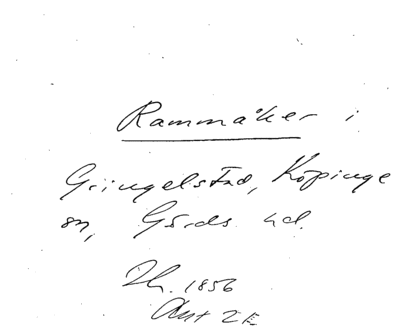 Rammåker i
Gringelstad, Köpinge
sn, Gärds hd.
1856
Ant 2 E